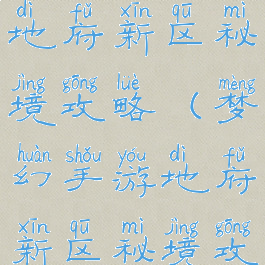 dì fǔ xīn qū mì
地府新区秘
jìng gōng luè mèng
境攻略（梦
huàn shǒu yóu dì fǔ
幻手游地府
xīn qū mì jìng gōng
新区秘境攻